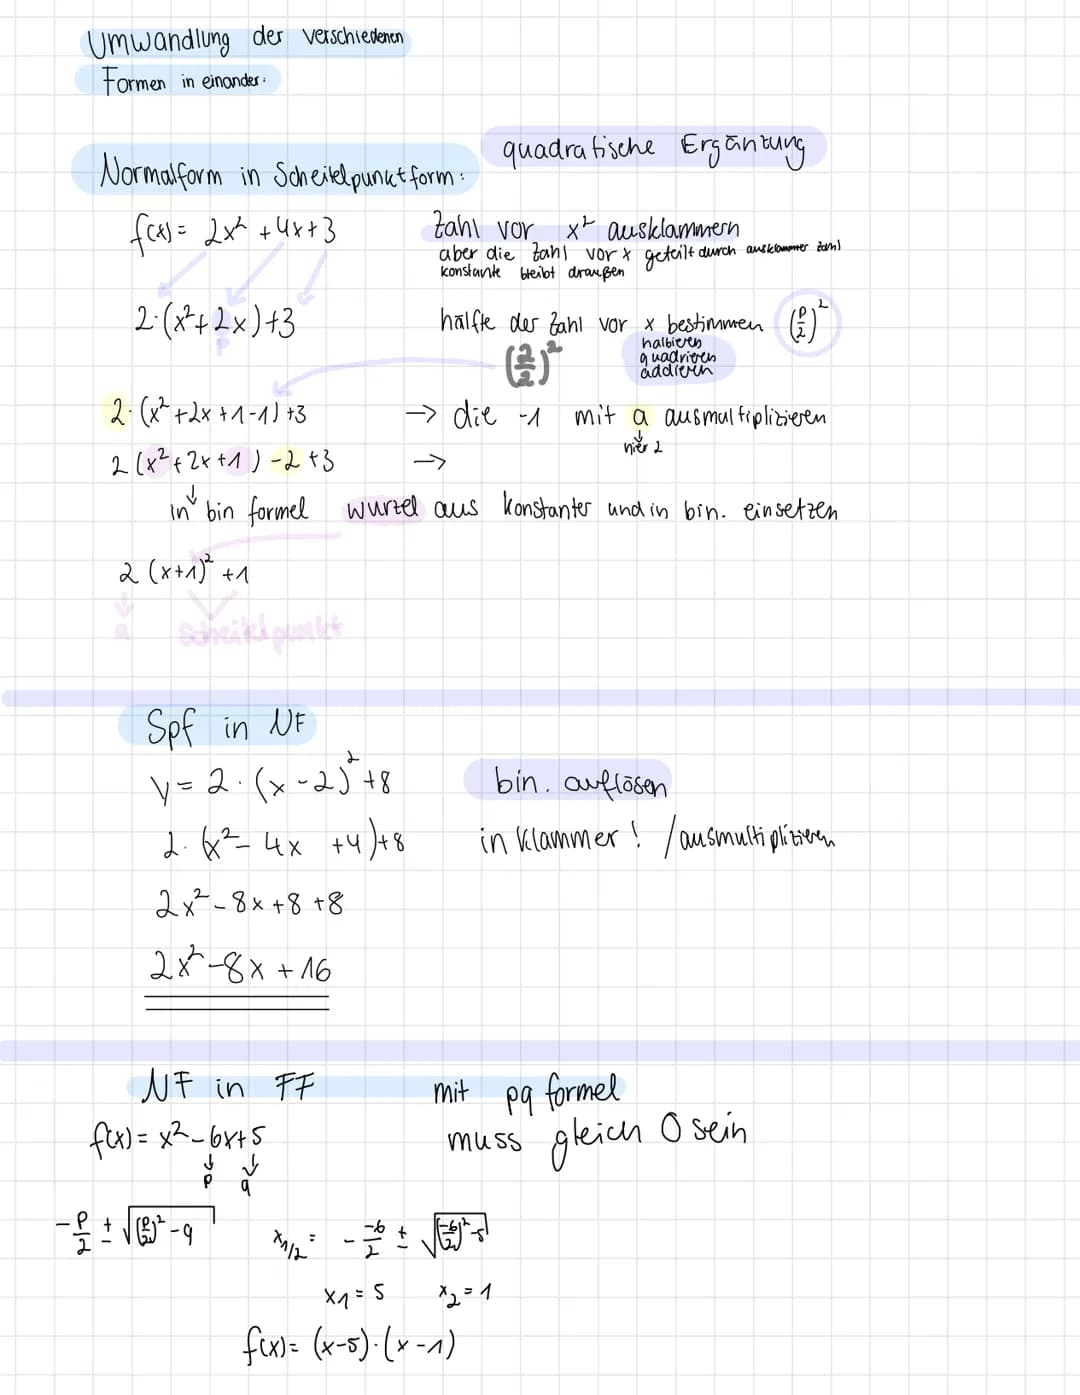 Umwandlung der verschiedenen
Formen in einander.
quadratische Ergänzung
Normalform in Scheitelpunktform:
f(x) = 2x² + 4x + 3 Zahl vor x² ausklammern
aber die Zahl vor x geteilt durch ausklammer Zahl
konstante bleibt draußen
2·(x²+2x)+3 hälfte der Zahl vor x bestimmen (p/2)²
p
halbieren
quadrieren
addieren
(2/2)²
2·(x²+2x+1-1)+3 → die -1 mit a ausmultiplizieren
hier 2
2(x²+2x+1)-2+3 →
in bin formel wurzel aus konstanter und in bin. einsetzen
2(x+1)²+1
a Scheitelpunkt
Spf in NF
y = 2·(x-2)²+8 bin. auflösen
2·(x²-4x +4)+8 in Klammer! /ausmultiplizieren
2x²-8x+8+8
2x²-8x+16
NF in FF mit pq formel
f(x) = x²-6x+5 muss gleich 0 sein
p q
-p/2 ± √((p/2)²-q) x1/2 = - -6/2 ± √((-6/2)²-5)
x1 = 5 x2 = 1
f(x) = (x-5)·(x-1)